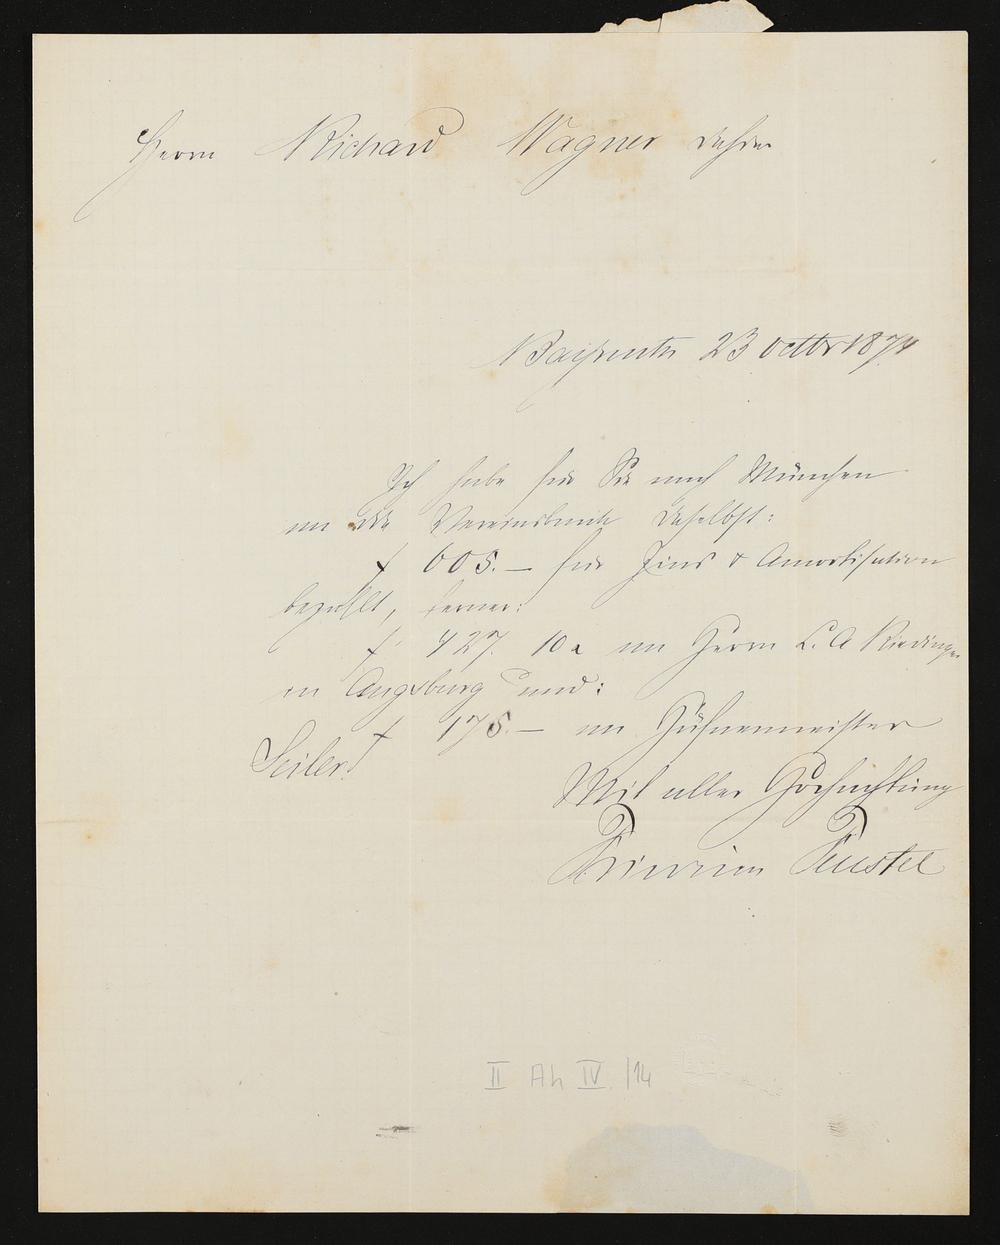 Herrn Richard Wagner dahier
Bayreuth 23 Octbr 1874
Ich habe für Sie nach München
an die Vereinsbank daselbst:
f 605.— für Zins & Amortisation
bezahlt, ferner:
f 427. 10 x an Herrn L. A Riedinger
in Augsburg und:
f 175.— an Hühnermeister
Seiler.
Mit aller Hochachtung
Friedrich Feustel
II Ah IV. /14